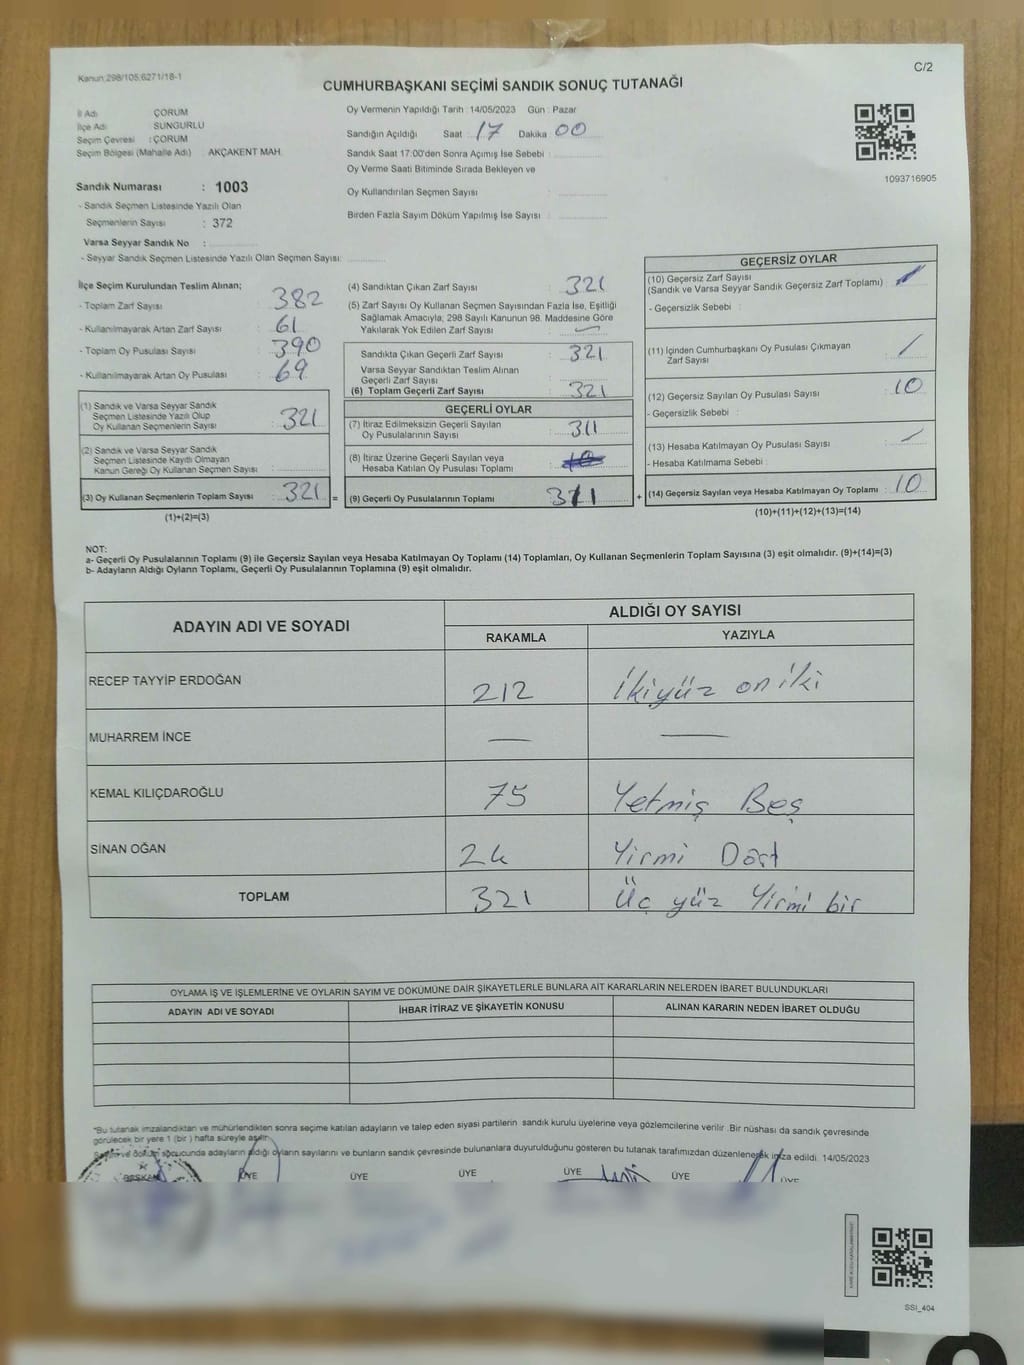 Kanun:298/105;6271/18-1
C/2
CUMHURBAŞKANI SEÇİMİ SANDIK SONUÇ TUTANAĞI
İl Adı : ÇORUM
İlçe Adı : SUNGURLU
Seçim Çevresi : ÇORUM
Seçim Bölgesi (Mahalle Adı) : AKÇAKENT MAH.
Sandık Numarası : 1003
- Sandık Seçmen Listesinde Yazılı Olan
Seçmenlerin Sayısı : 372
Varsa Seyyar Sandık No :
- Seyyar Sandık Seçmen Listesinde Yazılı Olan Seçmen Sayısı:
Oy Vermenin Yapıldığı Tarih : 14/05/2023 Gün : Pazar
Sandığın Açıldığı Saat : 17 Dakika : 00
Sandık Saat 17:00'den Sonra Açımış İse Sebebi :
Oy Verme Saati Bitiminde Sırada Bekleyen ve
Oy Kullandırılan Seçmen Sayısı :
Birden Fazla Sayım Döküm Yapılmış İse Sayısı :
1093716905
İlçe Seçim Kurulundan Teslim Alınan;
- Toplam Zarf Sayısı : 382
- Kullanılmayarak Artan Zarf Sayısı : 61
- Toplam Oy Pusulası Sayısı : 390
- Kullanılmayarak Artan Oy Pusulası : 69
(1) Sandık ve Varsa Seyyar Sandık
Seçmen Listesinde Yazılı Olup
Oy Kullanan Seçmenlerin Sayısı : 321
(2) Sandık ve Varsa Seyyar Sandık
Seçmen Listesinde Kayıtlı Olmayan
Kanun Gereği Oy Kullanan Seçmen Sayısı :
(3) Oy Kullanan Seçmenlerin Toplam Sayısı : 321 =
(1)+(2)=(3)
(4) Sandıktan Çıkan Zarf Sayısı : 321
(5) Zarf Sayısı Oy Kullanan Seçmen Sayısından Fazla İse, Eşitliği
Sağlamak Amacıyla; 298 Sayılı Kanunun 98. Maddesine Göre
Yakılarak Yok Edilen Zarf Sayısı :
Sandıkta Çıkan Geçerli Zarf Sayısı : 321
Varsa Seyyar Sandıktan Teslim Alınan
Geçerli Zarf Sayısı :
(6) Toplam Geçerli Zarf Sayısı : 321
GEÇERLİ OYLAR
(7) İtiraz Edilmeksizin Geçerli Sayılan
Oy Pusulalarının Sayısı : 311
(8) İtiraz Üzerine Geçerli Sayılan veya
Hesaba Katılan Oy Pusulası Toplamı :
(9) Geçerli Oy Pusulalarının Toplamı : 311 +
GEÇERSİZ OYLAR
(10) Geçersiz Zarf Sayısı
(Sandık ve Varsa Seyyar Sandık Geçersiz Zarf Toplamı) :
- Geçersizlik Sebebi :
(11) İçinden Cumhurbaşkanı Oy Pusulası Çıkmayan
Zarf Sayısı :
(12) Geçersiz Sayılan Oy Pusulası Sayısı : 10
- Geçersizlik Sebebi :
(13) Hesaba Katılmayan Oy Pusulası Sayısı :
- Hesaba Katılmama Sebebi :
(14) Geçersiz Sayılan veya Hesaba Katılmayan Oy Toplamı : 10
(10)+(11)+(12)+(13)=(14)
NOT:
a- Geçerli Oy Pusulalarının Toplamı (9) ile Geçersiz Sayılan veya Hesaba Katılmayan Oy Toplamı (14) Toplamları, Oy Kullanan Seçmenlerin Toplam Sayısına (3) eşit olmalıdır. (9)+(14)=(3)
b- Adayların Aldığı Oyların Toplamı, Geçerli Oy Pusulalarının Toplamına (9) eşit olmalıdır.
ADAYIN ADI VE SOYADI
ALDIĞI OY SAYISI
RAKAMLA YAZIYLA
RECEP TAYYİP ERDOĞAN 212 İkiyüz on iki
MUHARREM İNCE — —
KEMAL KILIÇDAROĞLU 75 Yetmiş Beş
SİNAN OĞAN 24 Yirmi Dört
TOPLAM 321 Üç yüz Yirmi bir
OYLAMA İŞ VE İŞLEMLERİNE VE OYLARIN SAYIM VE DÖKÜMÜNE DAİR ŞİKAYETLERLE BUNLARA AİT KARARLARIN NELERDEN İBARET BULUNDUKLARI
ADAYIN ADI VE SOYADI İHBAR İTİRAZ VE ŞİKAYETİN KONUSU ALINAN KARARIN NEDEN İBARET OLDUĞU
"Bu tutanak imzalandıktan ve mühürlendikten sonra seçime katılan adayların ve talep eden siyasi partilerin sandık kurulu üyelerine veya gözlemcilerine verilir .Bir nüshası da sandık çevresinde
görülecek bir yere 1 (bir ) hafta süreyle asılır.
Sayım ve döküm sonucunda adayların aldığı oyların sayılarını ve bunların sandık çevresinde bulunanlara duyurulduğunu gösteren bu tutanak tarafımızdan düzenlenerek imza edildi. 14/05/2023
BAŞKAN ÜYE ÜYE ÜYE ÜYE ÜYE ÜYE
SSI_404